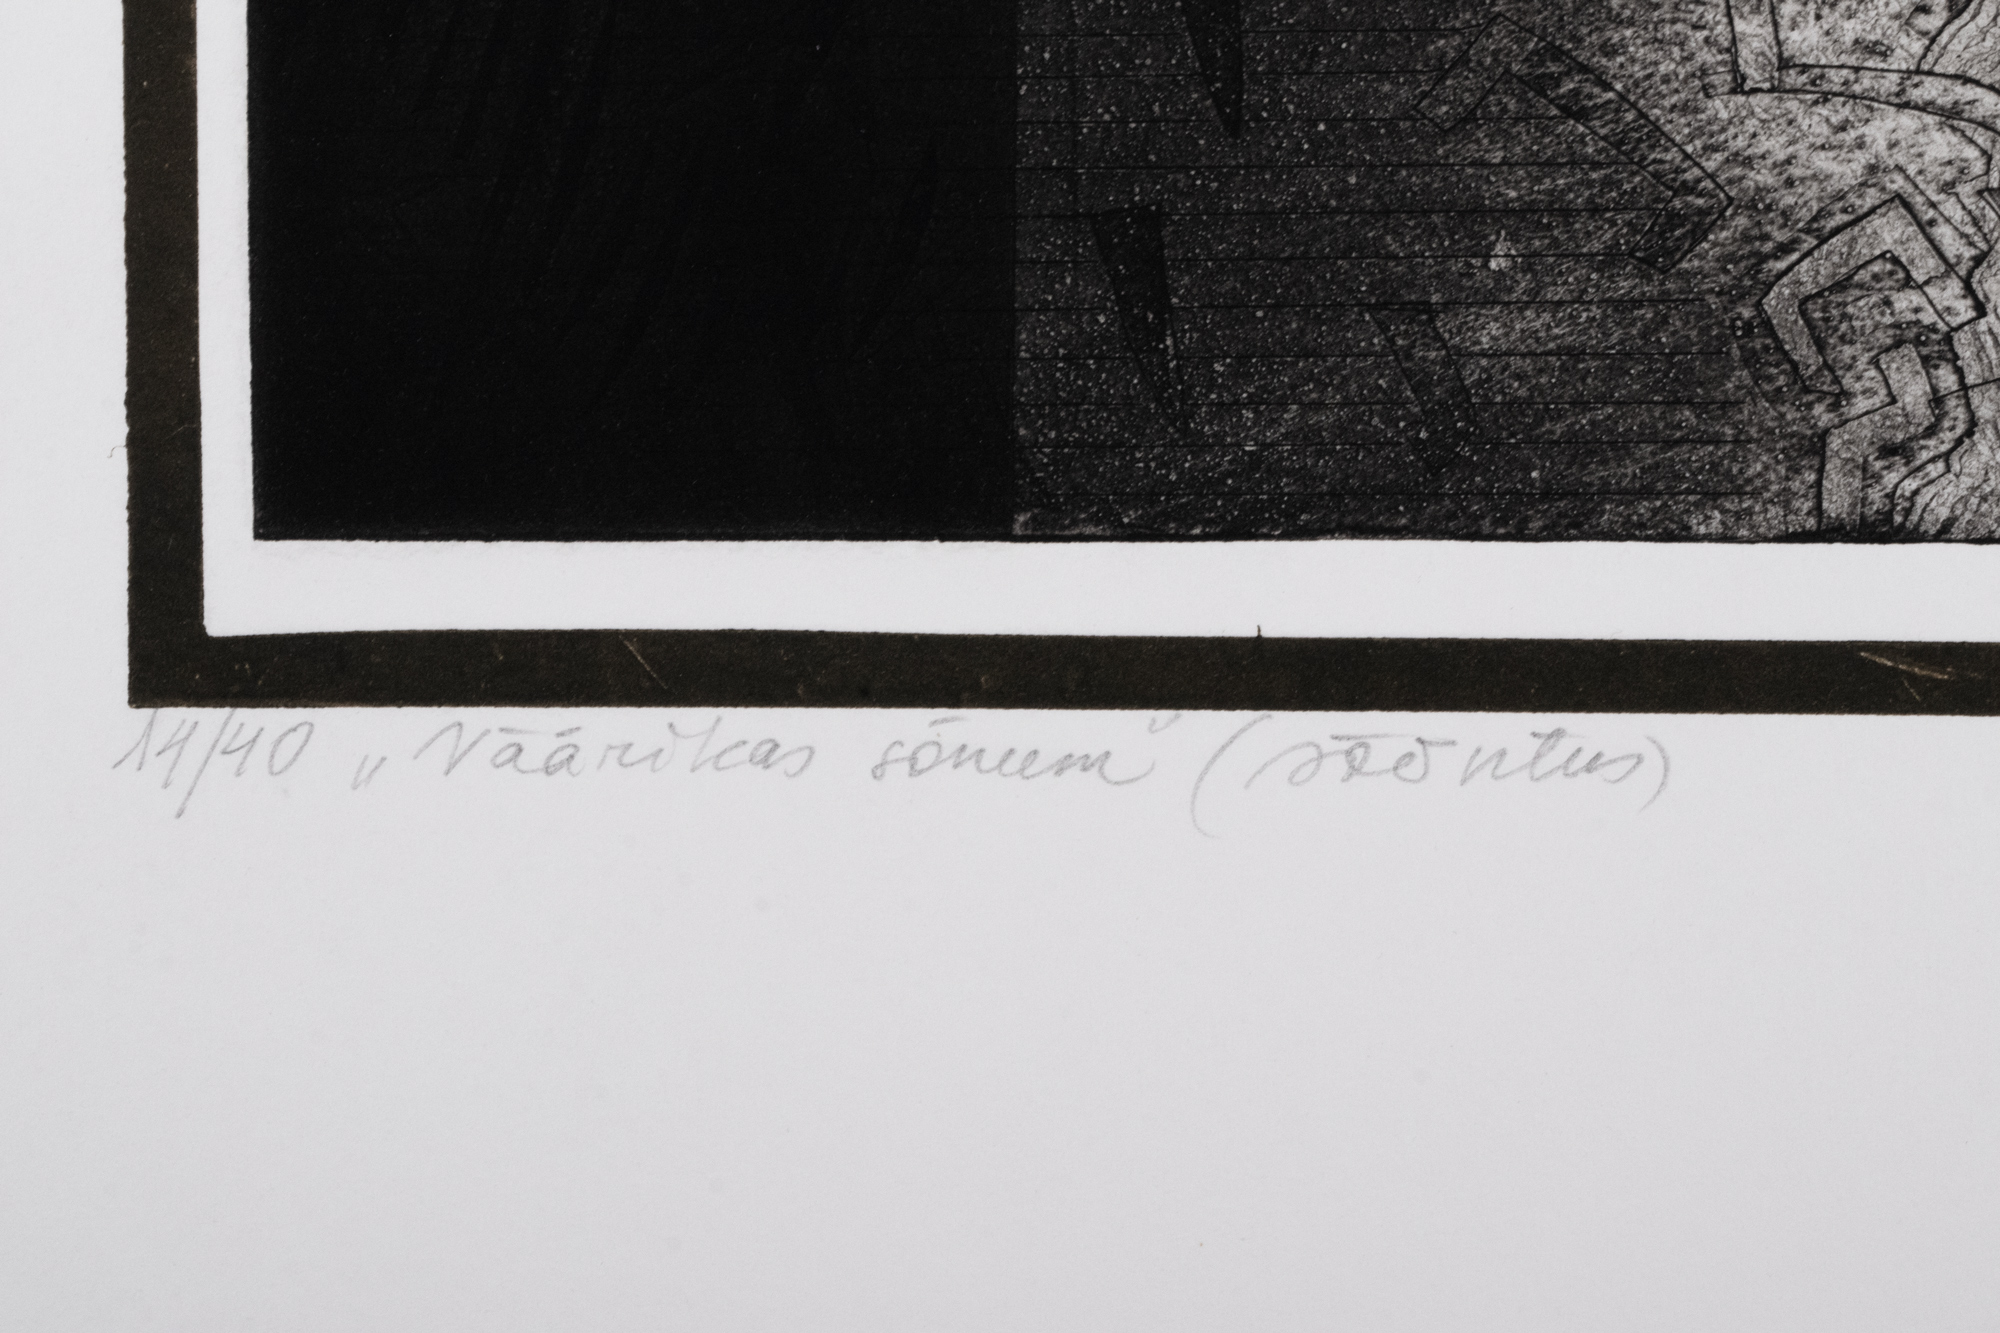 14/40 „Väärikas sõnum” (sööntus)